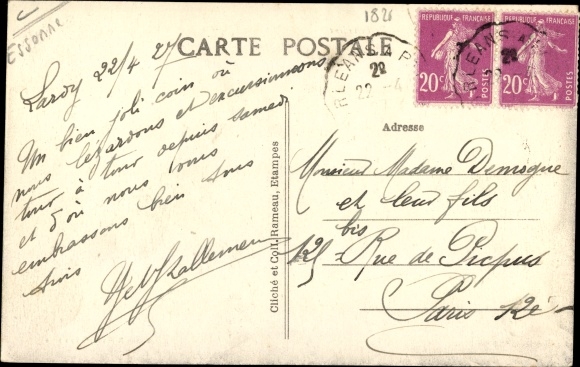 ESSONNE
1821
CARTE POSTALE
RÉPUBLIQUE FRANÇAISE
20c
POSTES
RÉPUBLIQUE FRANÇAISE
20c
POSTES
22 -4
Lardy 22/4 27
Un bien joli coin où
nous lezardons et excursionnons
tour à tour depuis samedi
et d'où nous vous
embrassons bien tous
trois
Cliché et Coll. Rameau, Etampes
Adresse
Monsieur Madame Demogue
et leur fils
125 bis Rue de Picpus
Paris 12è